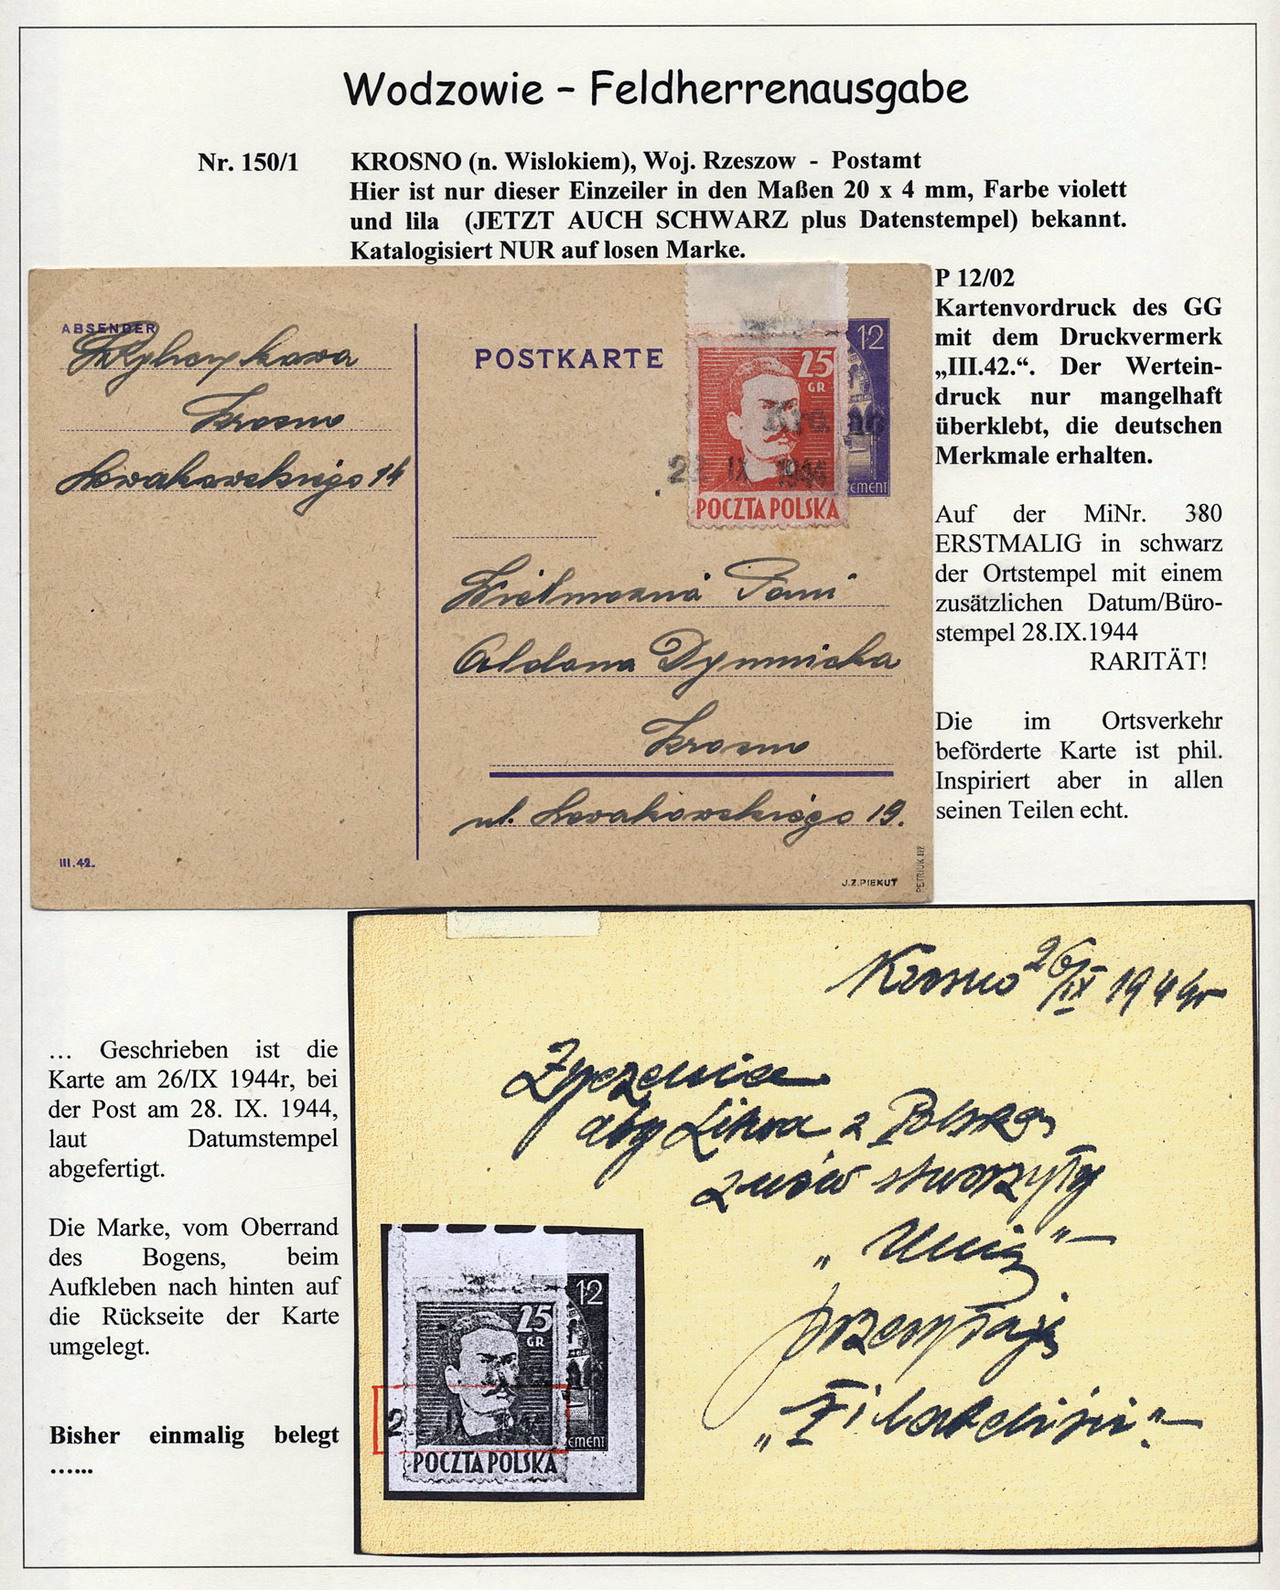 Wodzowie – Feldherrenausgabe
Nr. 150/1
KROSNO (n. Wislokiem), Woj. Rzeszow - Postamt
Hier ist nur dieser Einzeiler in den Maßen 20 x 4 mm, Farbe violett
und lila (JETZT AUCH SCHWARZ plus Datenstempel) bekannt.
Katalogisiert NUR auf losen Marke.
P 12/02
Kartenvordruck des GG
mit dem Druckvermerk
„III.42.“. Der Wertein-
druck nur mangelhaft
überklebt, die deutschen
Merkmale erhalten.
Auf der MiNr. 380
ERSTMALIG in schwarz
der Ortstempel mit einem
zusätzlichen Datum/Büro-
stempel 28.IX.1944
RARITÄT!
Die im Ortsverkehr
beförderte Karte ist phil.
Inspiriert aber in allen
seinen Teilen echt.
ABSENDER
Krosno
Nowakowskiego 14
POSTKARTE
12
25
GR
IX 1944
POCZTA POLSKA
EMENT
Wielmożna Pani
Aldona Dymnicka
Krosno
ul. Nowakowskiego 19.
III.42.
J.Z.PIEKUT
PETRIUK
Krosno 26/IX 1944r
Życzenia
aby Litwa z Polską
znów stworzyły
„Unię“ –
przesyłają
„Filateliści“ –
12
25
GR
2 IX
EMENT
POCZTA POLSKA
… Geschrieben ist die
Karte am 26/IX 1944r, bei
der Post am 28. IX. 1944,
laut Datumstempel
abgefertigt.
Die Marke, vom Oberrand
des Bogens, beim
Aufkleben nach hinten auf
die Rückseite der Karte
umgelegt.
Bisher einmalig belegt
…...